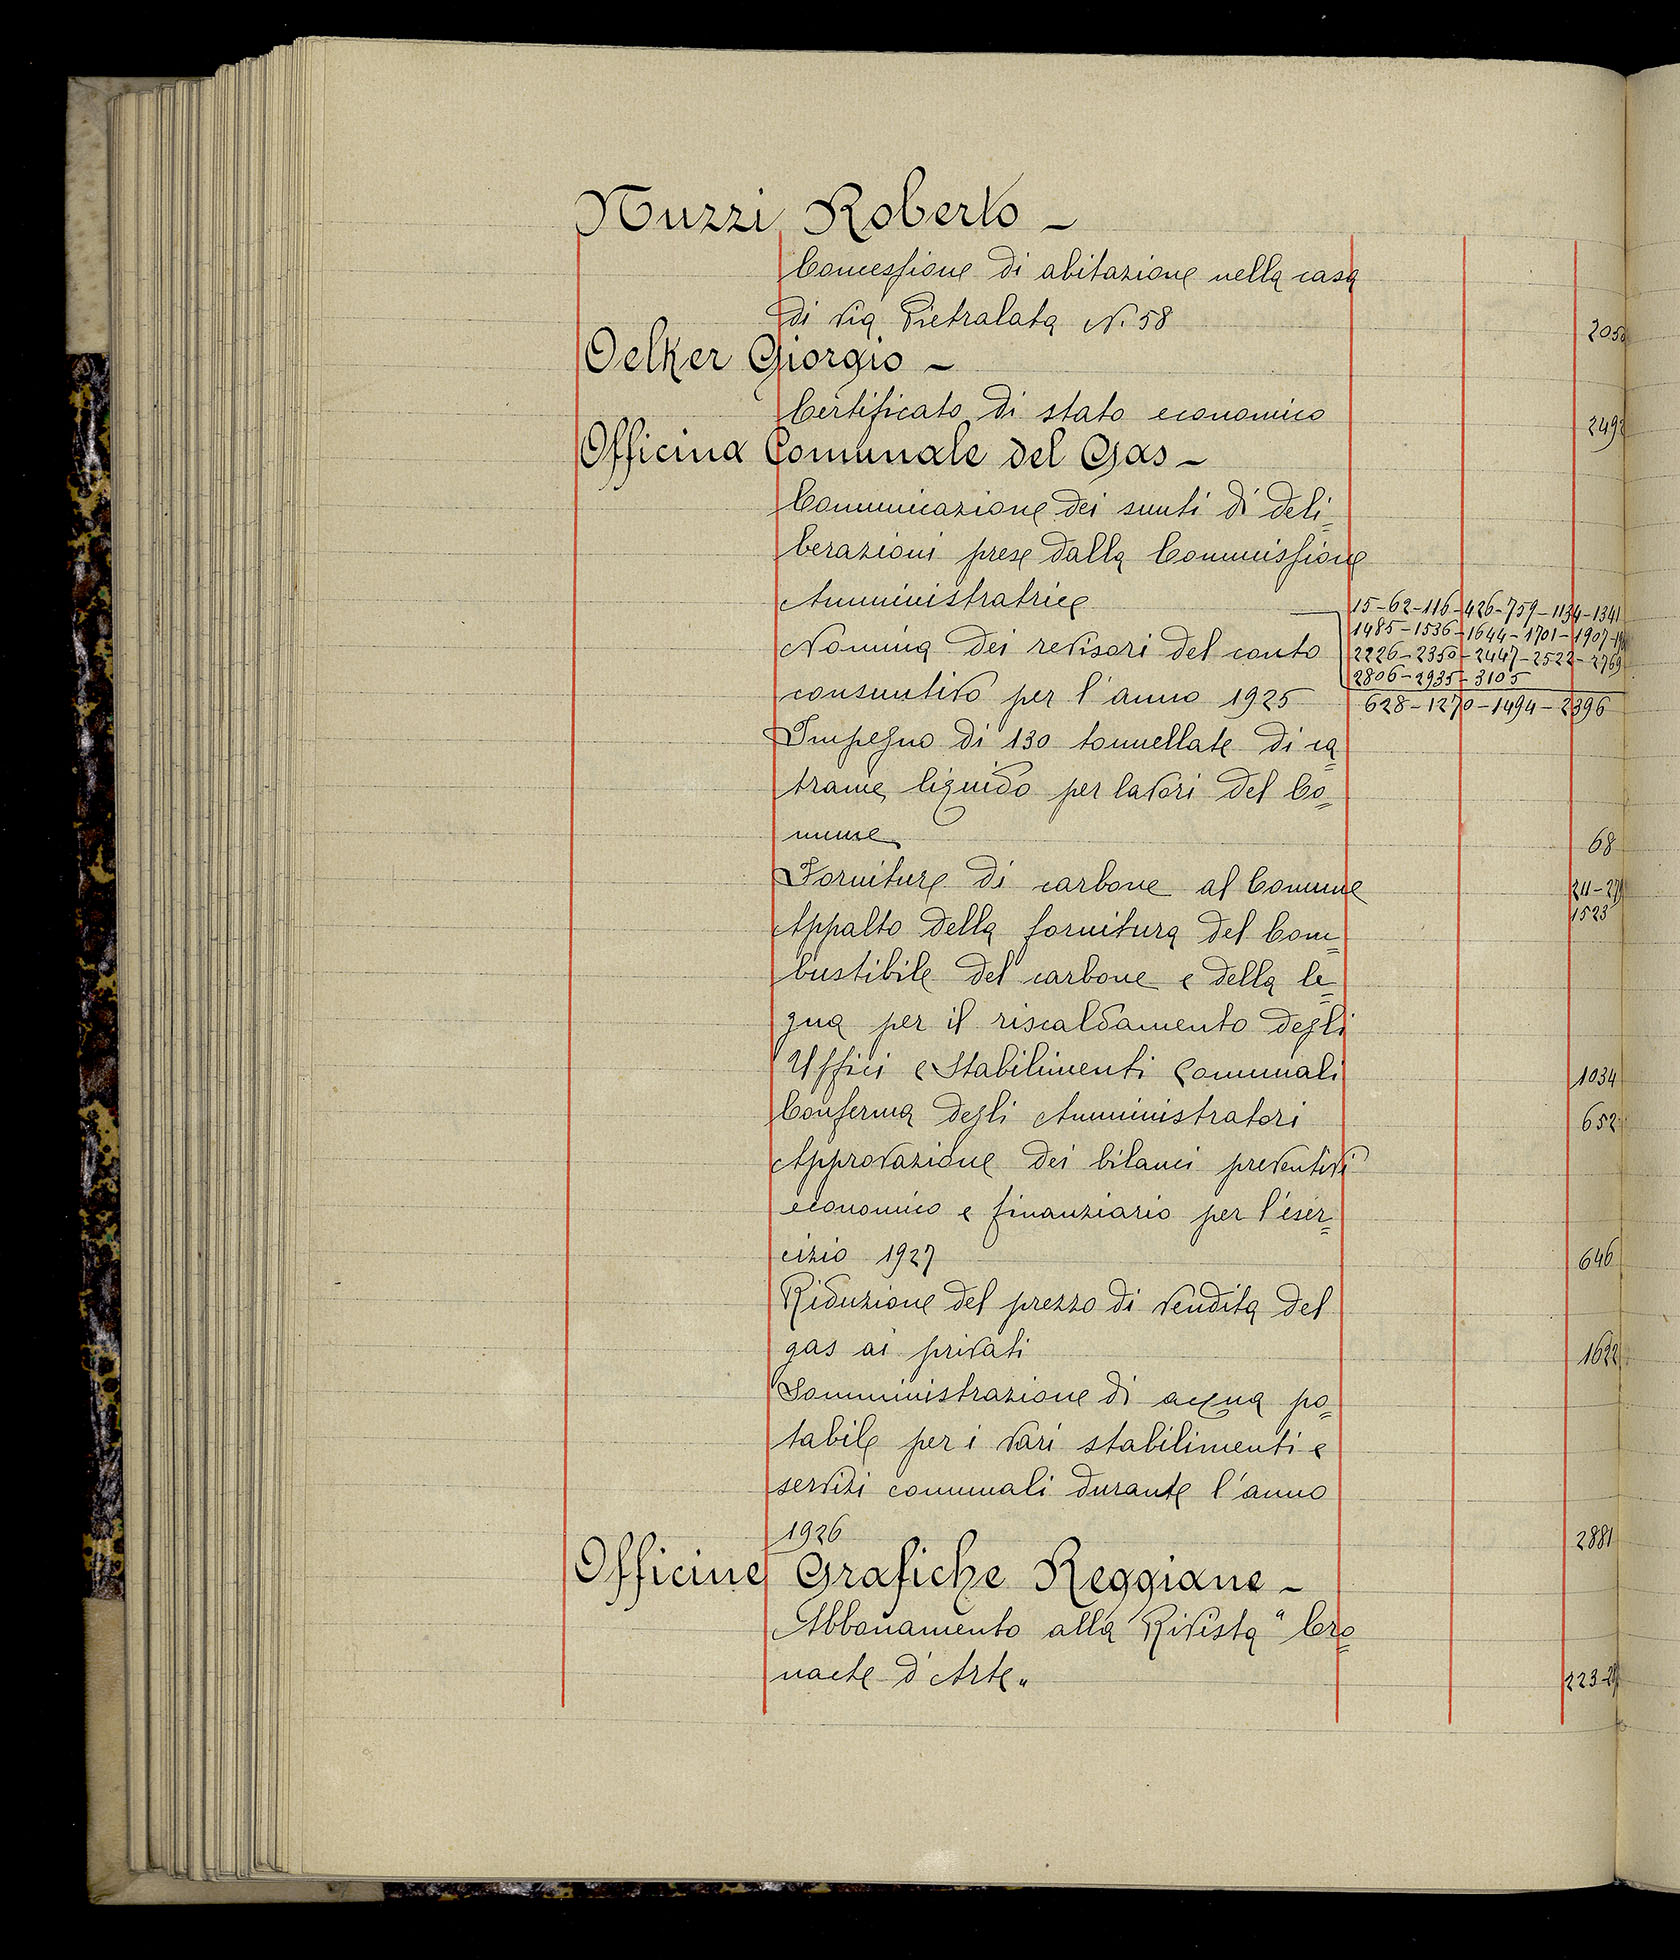 Nuzzi Roberto –
Concessione di abitazione nella casa
di via Pietralata N. 58
Oelker Giorgio –
Certificato di stato economico
2492
Officina Comunale del Gas –
Comunicazione dei sunti di deli=
berazioni prese dalla Commissione
Amministratrice
15-62-116-426-759-1134-1341
1485-1536-1644-1701-1907-
2226-2350-2447-2522-2769
2806-2935-3105
Nomina dei revisori del conto
consuntivo per l'anno 1925
628-1270-1494-2396
Impegno di 130 tonnellate di ca=
trame liquido per lavori del Co=
mune
68
Forniture di carbone al Comune
211-
1523
Appalto della fornitura del Com=
bustibile del carbone e della le=
gna per il riscaldamento degli
Uffici e Stabilimenti Comunali
1034
Conferma degli Amministratori
652
Approvazione dei bilanci preventivi
economico e finanziario per l'eser=
cizio 1927
646
Riduzione del prezzo di vendita del
gas ai privati
1622
Somministrazione di acqua po=
tabile per i vari stabilimenti e
servizi comunali durante l'anno
1926
2881
Officine Grafiche Reggiane –
Abbonamento alla Rivista "Cro=
nache d'Arte"
223-